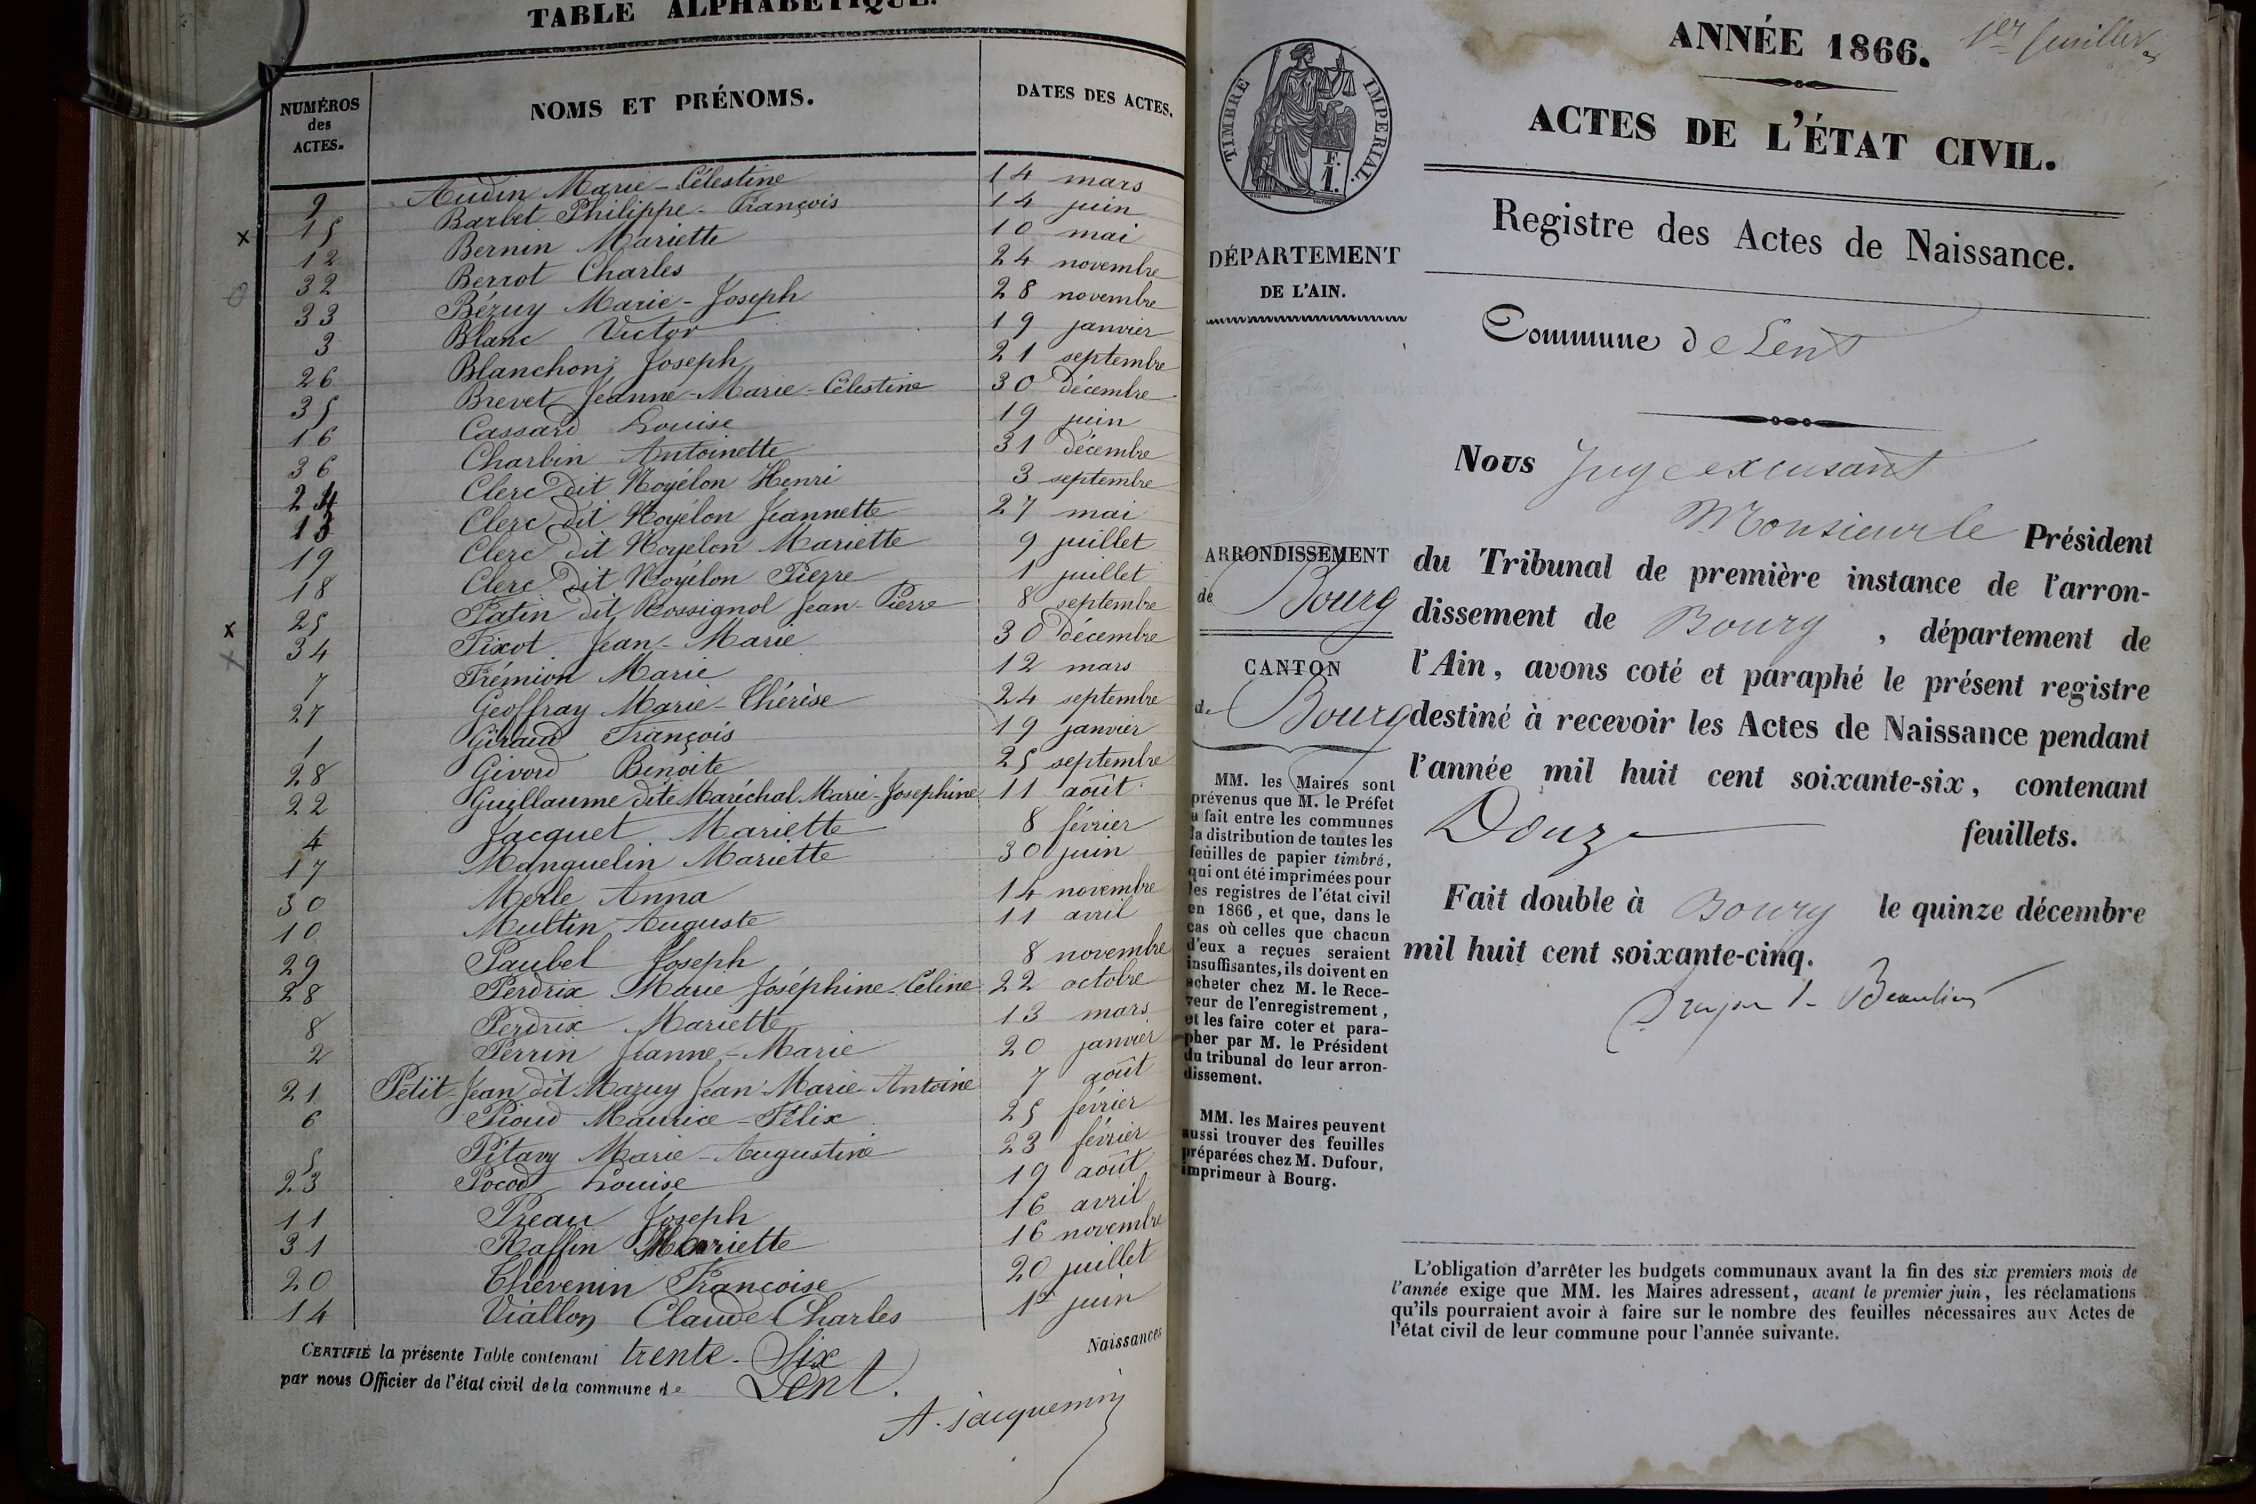 TABLE ALPHABÉTIQUE.
NUMÉROS des ACTES. NOMS ET PRÉNOMS. DATES DES ACTES.
9 Audin Marie-Célestine 14 mars
15 Barbet Philippe-François 14 juin
12 Bernin Mariette 10 mai
32 Berrot Charles 24 novembre
33 Bézuy Marie-Joseph 28 novembre
3 Blanc Victor 19 janvier
26 Blanchon Joseph 21 septembre
35 Brevet Jeanne-Marie-Célestine 30 décembre
16 Cassard Louise 19 juin
36 Charbin Antoinette 31 décembre
24 Clerc dit Noyélon Henri 3 septembre
13 Clerc dit Noyélon Jeannette 27 mai
19 Clerc dit Noyélon Mariette 9 juillet
18 Clerc dit Noyélon Pierre 1 juillet
25 Fatin dit Rossignol Jean-Pierre 8 septembre
34 Fixot Jean-Marie 30 décembre
7 Frémion Marie 12 mars
27 Geoffray Marie-Thérèse 24 septembre
1 Giraud François 19 janvier
28 Givord Benoite 25 septembre
22 Guillaume dite Maréchal Marie-Josephine 11 août
4 Jacquet Mariette 8 février
17 Manguelin Mariette 30 juin
30 Merle Anna 14 novembre
10 Multin Auguste 11 avril
29 Paubel Joseph 8 novembre
28 Perdrix Marie Joséphine-Céline 22 octobre
8 Perdrix Mariette 13 mars
2 Perrin Jeanne-Marie 20 janvier
21 Petit-Jean dit Mazuy Jean-Marie-Antoine 7 août
6 Pioud Maurice-Félix 25 février
5 Pitavy Marie-Augustine 23 février
23 Pocod Louise 19 août
11 Preau Joseph 16 avril
31 Raffin Mariette 16 novembre
20 Thévenin Françoise 20 juillet
14 Viallon Claude Charles 1er juin
CERTIFIÉ la présente Table contenant trente-Six Naissances
par nous Officier de l'état civil de la commune de Lent.
A. Jacquemin
ANNÉE 1866. 1er feuillet
ACTES DE L'ÉTAT CIVIL.
Registre des Actes de Naissance.
Commune de Lent
TIMBRE IMPÉRIAL.
F.
1.
DÉPARTEMENT
DE L'AIN.
ARRONDISSEMENT
de Bourg
CANTON
de Bourg
MM. les Maires sont
prévenus que M. le Préfet
a fait entre les communes
la distribution de toutes les
feuilles de papier timbré,
qui ont été imprimées pour
les registres de l'état civil
en 1866, et que, dans le
cas où celles que chacun
d'eux a reçues seraient
insuffisantes, ils doivent en
acheter chez M. le Rece-
veur de l'enregistrement,
et les faire coter et para-
pher par M. le Président
du tribunal de leur arron-
dissement.
MM. les Maires peuvent
aussi trouver des feuilles
préparées chez M. Dufour,
imprimeur à Bourg.
Nous Juge excusant
Monsieur le Président
du Tribunal de première instance de l'arron-
dissement de Bourg, département de
l'Ain, avons coté et paraphé le présent registre
destiné à recevoir les Actes de Naissance pendant
l'année mil huit cent soixante-six, contenant
Douze feuillets.
Fait double à Bourg le quinze décembre
mil huit cent soixante-cinq.
L'obligation d'arrêter les budgets communaux avant la fin des six premiers mois de
l'année exige que MM. les Maires adressent, avant le premier juin, les réclamations
qu'ils pourraient avoir à faire sur le nombre des feuilles nécessaires aux Actes de
l'état civil de leur commune pour l'année suivante.